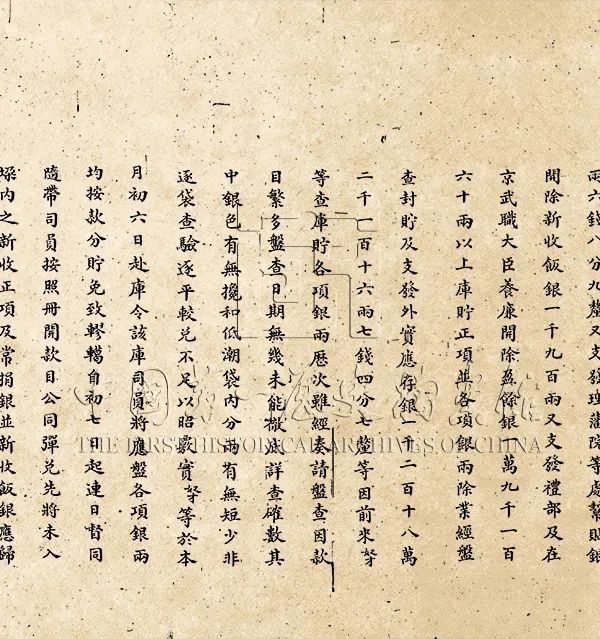 兩六錢八分九釐又支發理藩院等處幫貼銀
開除新收飯銀一千九百兩又支發禮部及在
京武職大臣養廉開除盈餘銀一萬九千一百
六十兩以上庫貯正項並各項銀兩除業經盤
查封貯及支發外實應存銀一千二百十八萬
二千一百十六兩七錢四分七釐等因前來孥
等查庫貯各項銀兩歷次雖經奏請盤查因款
目繁多盤查日期無幾未能徹底詳查確數其
中銀色有無攙和低潮袋內分兩有無短少非
逐袋查驗逐平較兌不足以昭覈實孥等於本
月初六日赴庫令該庫司員將應盤各項銀兩
均按款分貯免致轇轕自初七日起連日督同
隨帶司員按照冊開款目公同彈兌先將未入
垜內之新收正項及常捐銀並新收飯銀應歸
中國第一歷史檔案館
THE FIRST HISTORICAL ARCHIVES OF CHINA